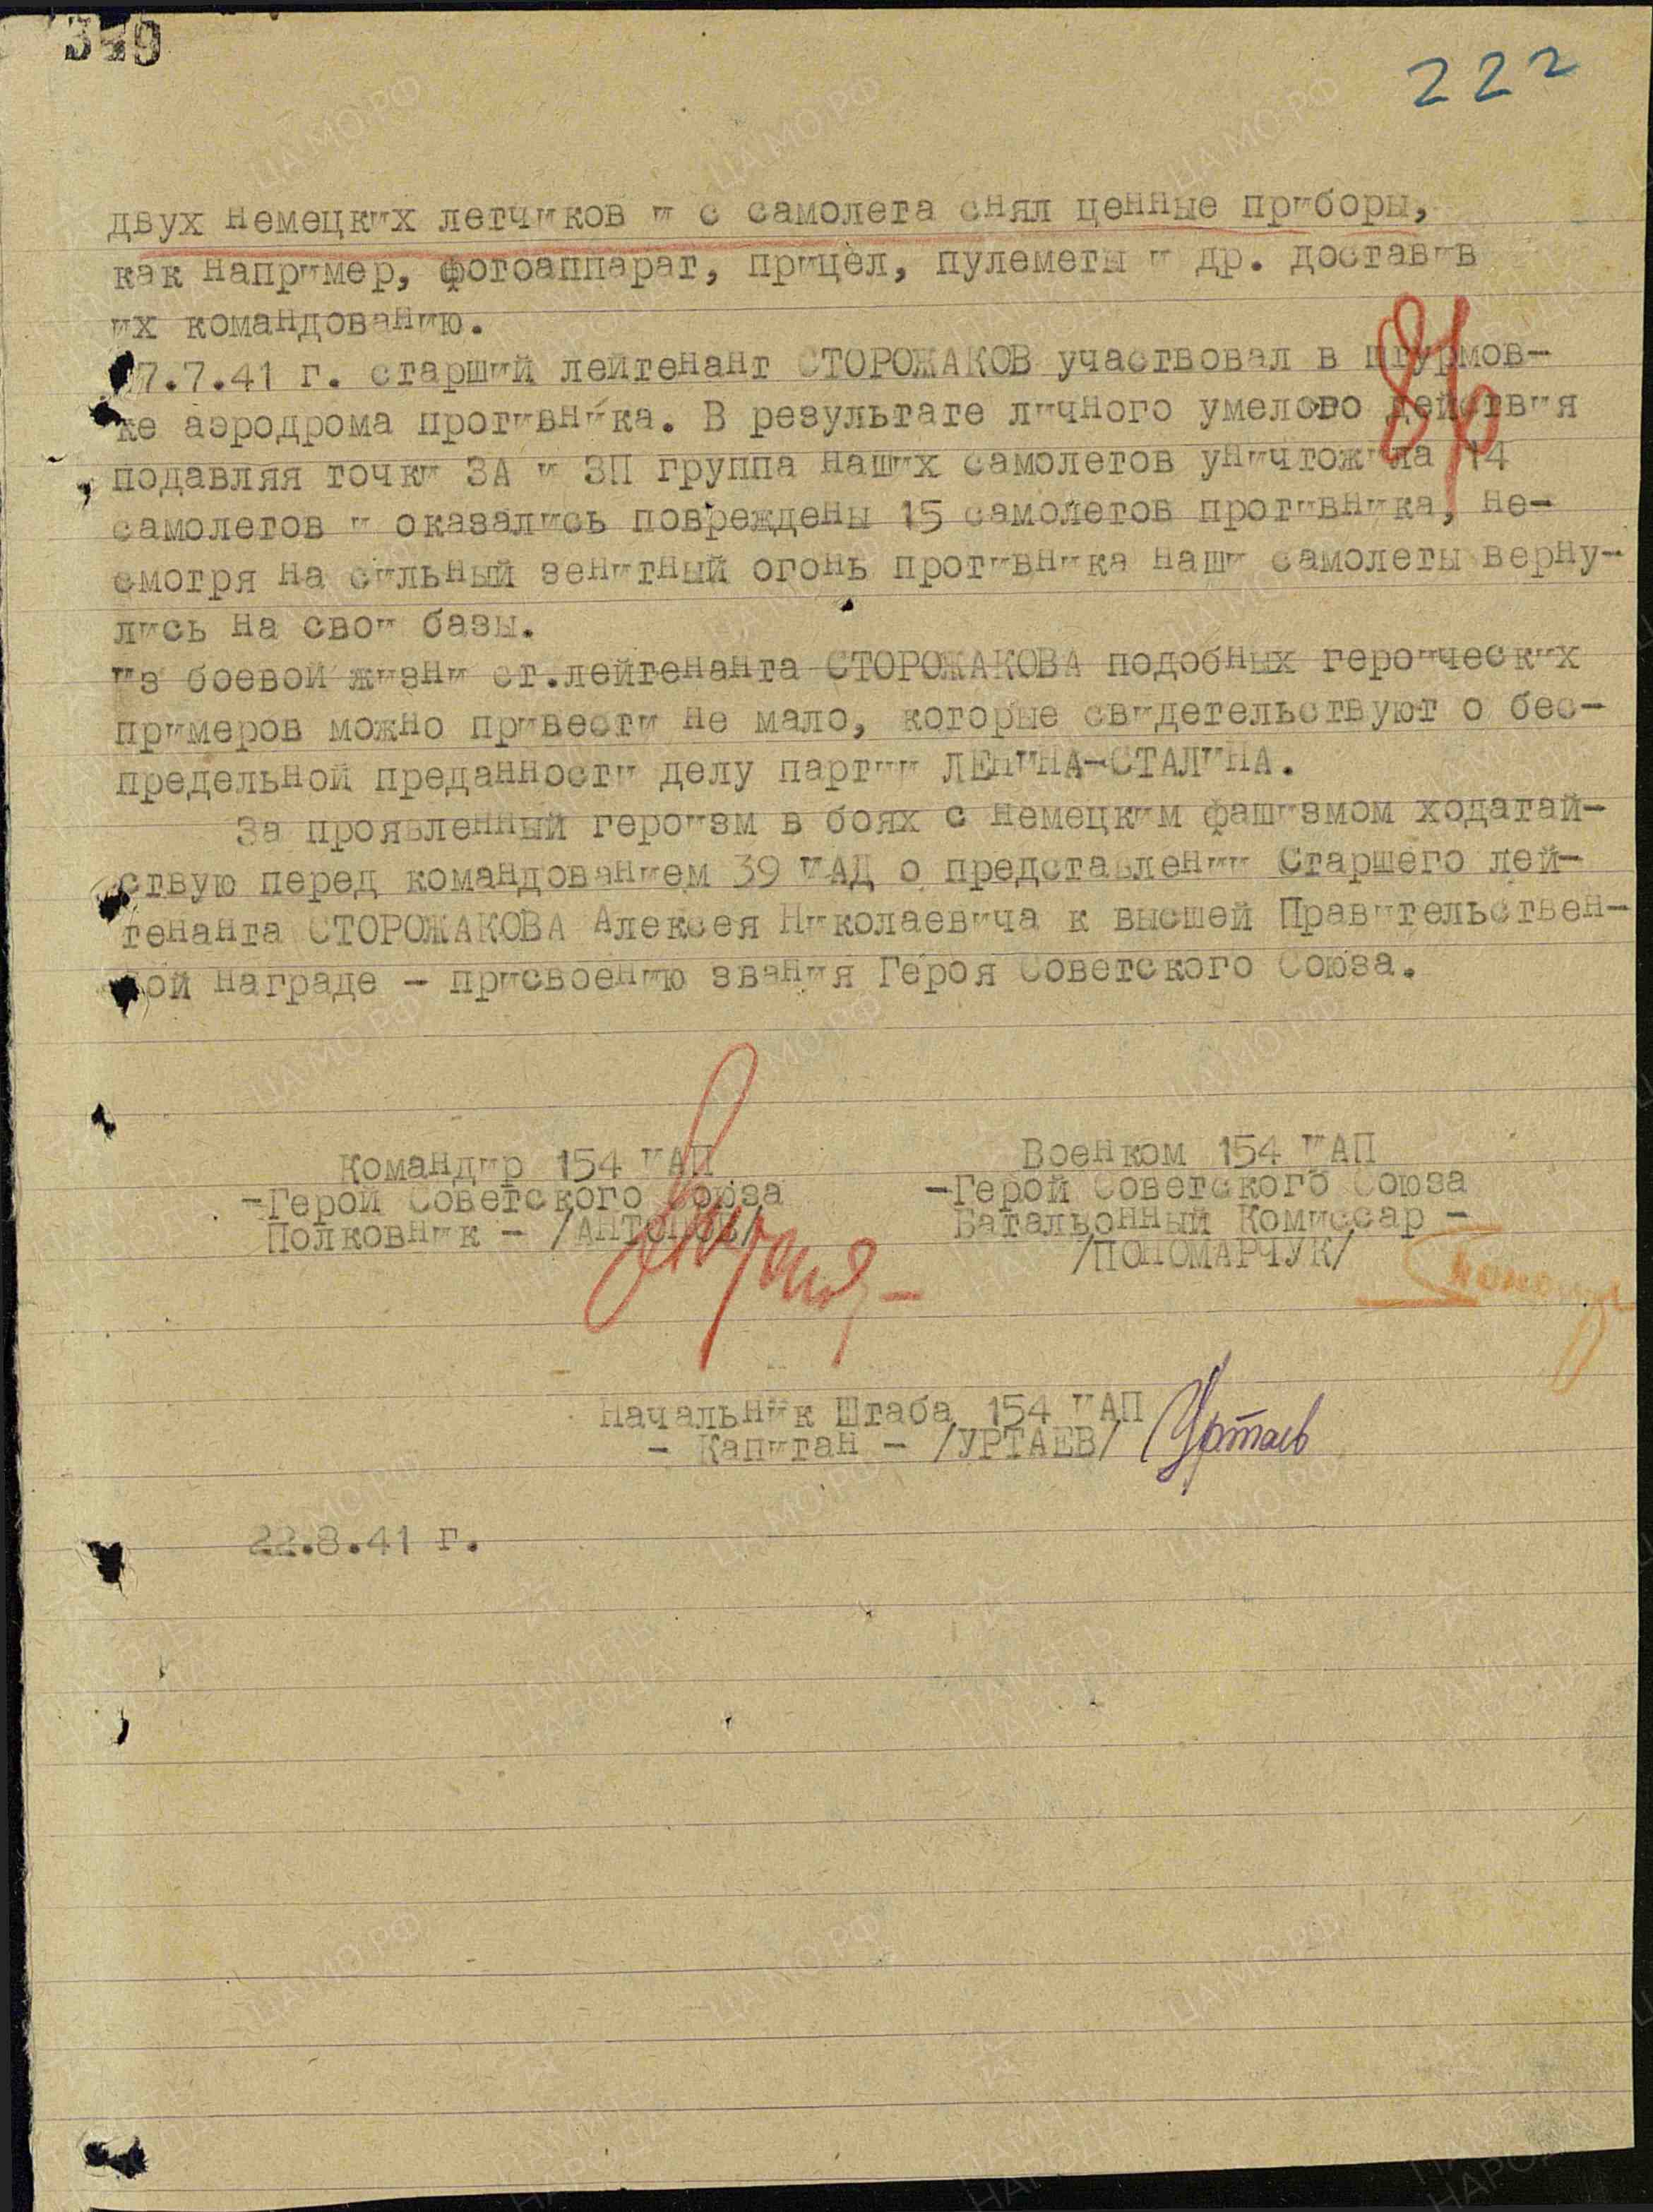 222
двух немецких летчиков и с самолета снял ценные приборы,
как например, фотоаппарат, прицел, пулеметы и др. доставив
их командованию.
7.7.41 г. старший лейтенант СТОРОЖАКОВ участвовал в штурмов-
ке аэродрома противника. В результате личного умелого действия
подавляя точки ЗА и ЗП группа наших самолетов уничтожила 14
самолетов и оказались повреждены 15 самолетов противника, не-
смотря на сильный зенитный огонь противника наши самолеты верну-
лись на свои базы.
из боевой жизни ст.лейтенанта СТОРОЖАКОВА подобных героических
примеров можно привести не мало, которые свидетельствуют о бес-
предельной преданности делу партии ЛЕНИНА-СТАЛИНА.
За проявленный героизм в боях с немецким фашизмом ходатай-
ствую перед командованием 39 ИАД о представлении Старшего лей-
тенанта СТОРОЖАКОВА Алексея Николаевича к высшей Правительствен-
ной награде - присвоению звания Героя Советского Союза.
Командир 154 ИАП
-Герой Советского Союза
Полковник - /АНТОНОВ/
Военком 154 ИАП
-Герой Советского Союза
Батальонный Комиссар -
/ПОНОМАРЧУК/
Начальник Штаба 154 ИАП
- Капитан - /УРТАЕВ/ Уртаев
22.8.41 г.
ЦА МО РФ
ПАМЯТЬ
НАРОДА